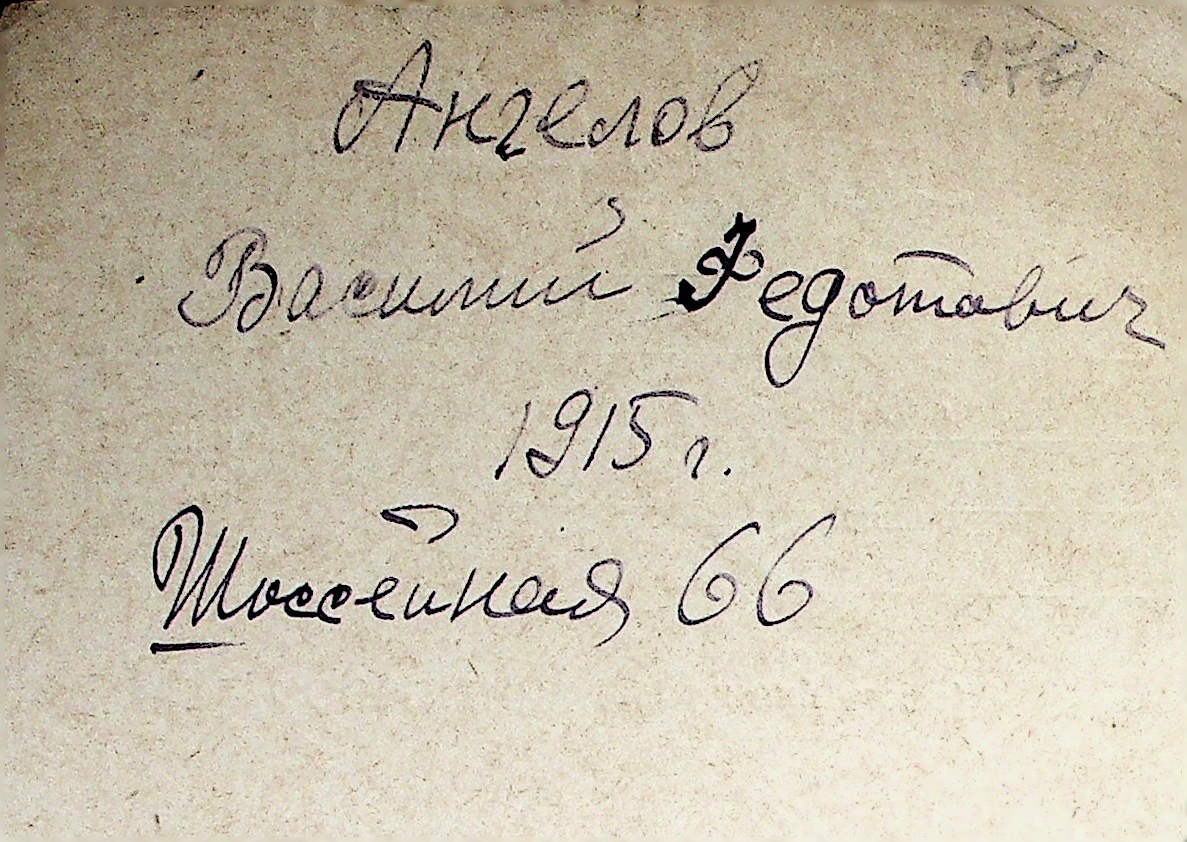 Ангелов
Василий Федотович
1915 г.
Шоссейная 66